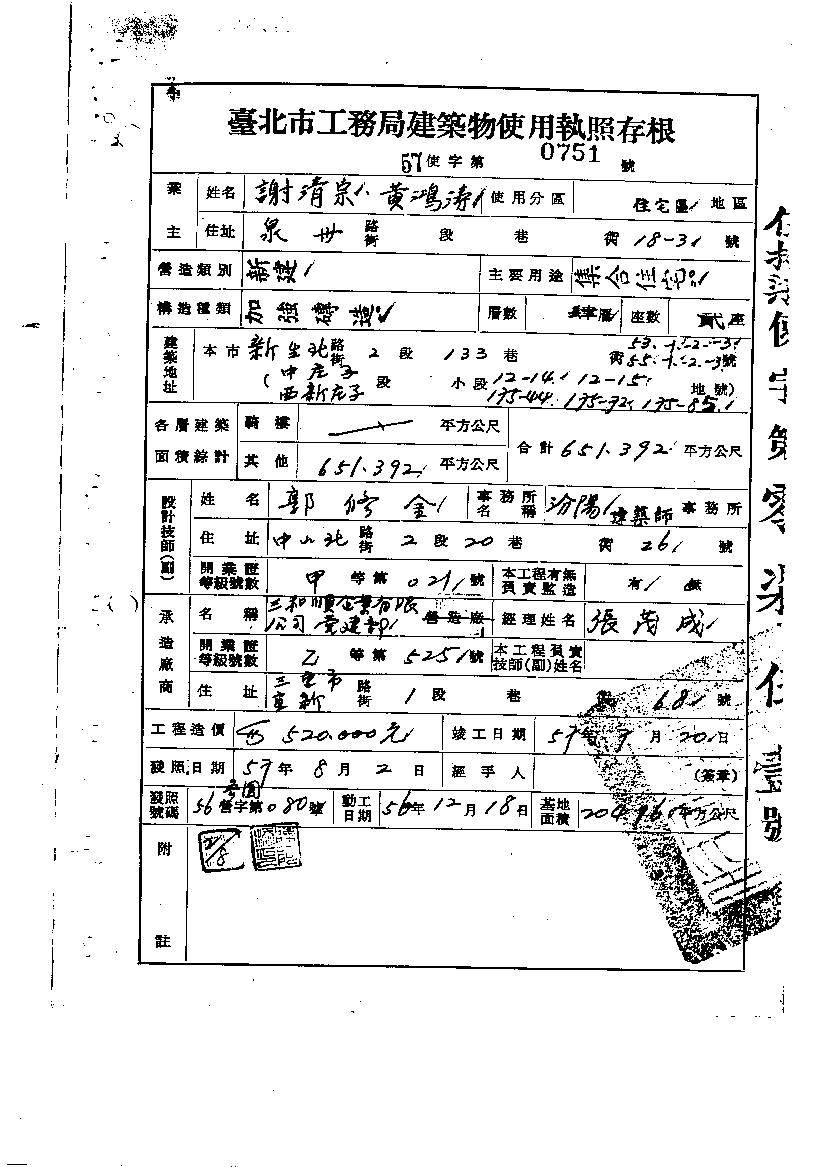 臺北市工務局建築物使用執照存根
57使字第 0751 號
業主 姓名 謝清宗 黃鴻濤 使用分區 住宅區 地區
住址 泉州 路街 段 巷 衖 18-3 號
營造類別 新建 主要用途 集合住宅
構造種類 加強磚造 層數 肆層 座數 貳座
建築地址 本市 新生北 路街 2段 133巷 衖 53-1.-2.-3. 55-1.-2.-3號
(中庄子 西新庄子 段 小段 12-14. 12-15. 175-44. 地號)
各層建築面積綜計 騎樓 平方公尺 合計 651.392 平方公尺
其他 651.392 平方公尺
設計技師(副) 姓名 郭修金 事務所名稱 汾陽 建築師 事務所
住址 中山北 路街 2段 20巷 衖 26 號
開業證等級號數 甲等第 021 號 本工程有無負責監造 有 無
承造廠商 名稱 三和順企業有限公司營建部 營造廠 經理姓名 張茂成
開業證等級號數 乙等第 525 號 本工程負責技師(副)姓名
住址 三重市 重新 路街 1段 巷 68 號
工程造價 520,000元 竣工日期 57年 月 20日
發照日期 57年8月2日 經手人 (簽章)
發照號碼 56 營字第 080 號 動工日期 56年12月18日 基地面積 平方公尺
附註 2/8